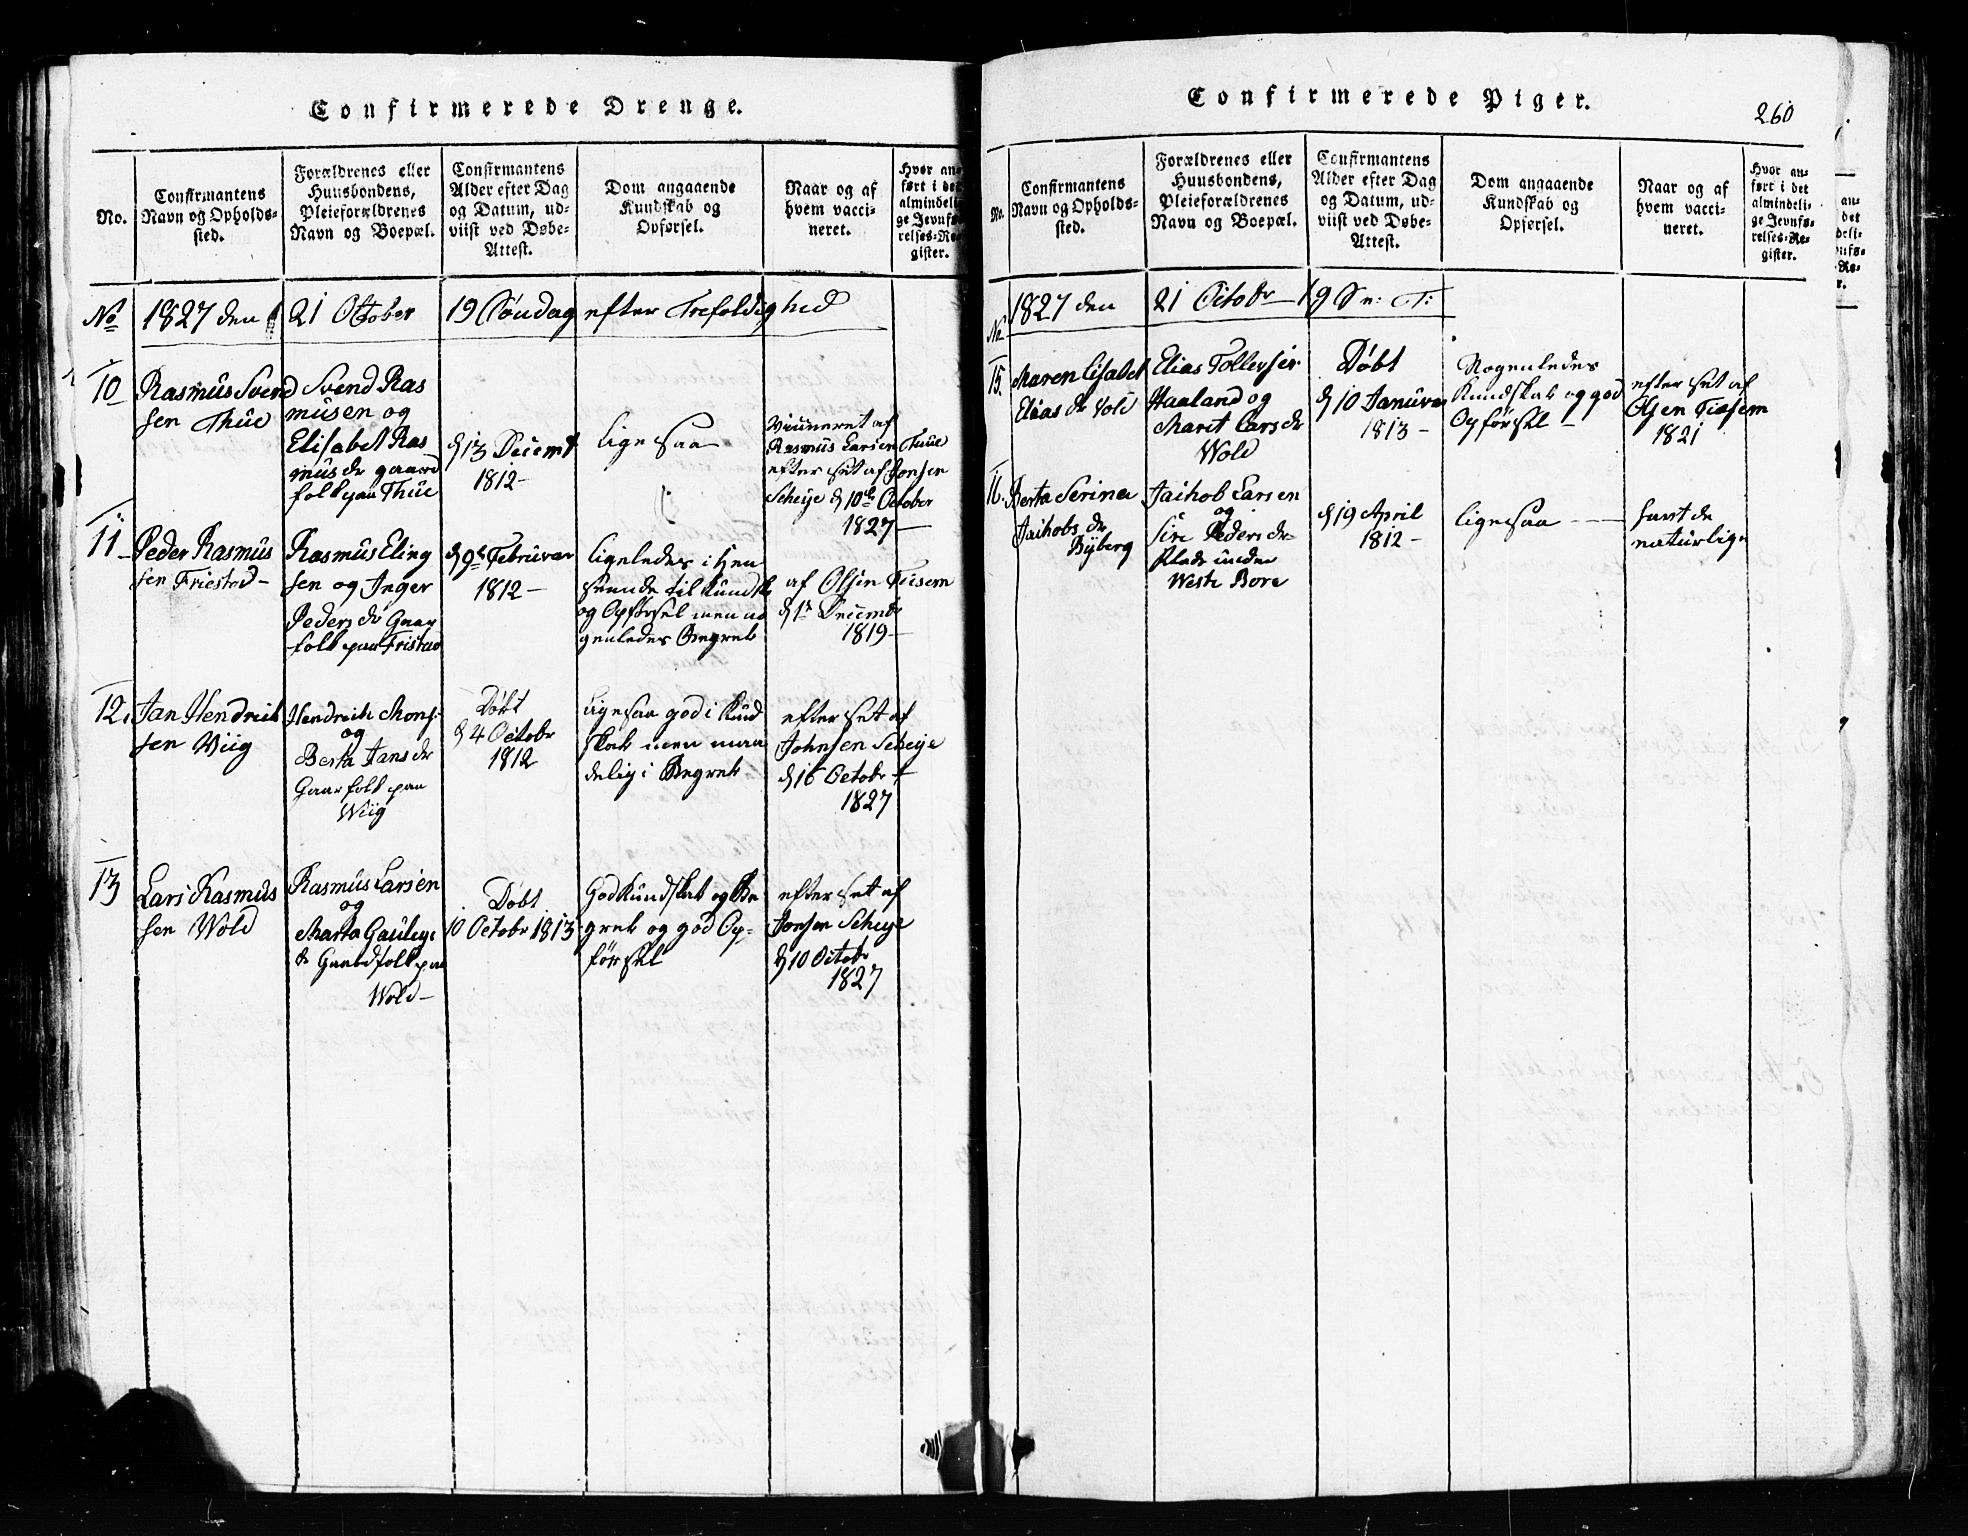 Confirmerede Drenge.
No.
Confirmantens
Navn og Opholds-
sted.
Forældrenes eller
Huusbondens,
Pleieforældrenes
Navn og Boepæl.
Confirmantens
Alder efter Dag
og Datum, ud-
viist ved Døbe-
Attest.
Dom angaaende
Kundskab og
Opførsel.
Naar og af
hvem vacci-
neret.
Hvor an-
ført i det
almindeli-
ge Jevnfø-
relses-Re-
gister.
No 1827 den 21 October 19 Søndag efter Trefoldighed
10
Rasmus Svend
sen Thue
Svend Ras
musen og
Elisabet Ras
mus dr gaard
folk paa Thue
d 13 Decemb
1812-
ligesaa
Vaccineret af
Rasmus Larsen Tuue
efter set af Jonsen
Scheye d 10de October
1827-
11
Peder Rasmus
sen Friestad-
Rasmus Eling
sen og Inger
Peders dr Gaar
folk paa Fristad
d 9de Februvar
1812-
ligeledes i Hen
seende til Kundsk
og Opførsel men no
genledes Begreb
af Olsen Tiesem
d 1te Decembr
1819-
12.
Jan Hendrich
sen Wiig
Hendrich Mons-
og
Berta Jans dr
Gaarfolk paa
Wiig
Døbt
d 4 Octobr
1812
Ligesaa god i Kund
skab men maa
delig i Begreb
efter set af
Johnsen Scheye
d 16 Octobr
1827
13
Lars Rasmus
sen Wold
Rasmus Larsen
og
Marta Gauleye
dr Gaardfolk paa
Wold-
Døbt
10 Octobr 1813
God Kundskab og Be
greb og god Op-
førsel
efter set af
Jonsen Scheye
d 10 Octobr
1827
Confirmerede Piger.
260
No.
Confirmantens
Navn og Opholds-
sted.
Forældrenes eller
Huusbondens,
Pleieforældrenes
Navn og Boepæl.
Confirmantens
Alder efter Dag
og Datum, ud-
viist ved Døbe-
Attest.
Dom angaaende
Kundskab og
Opførsel.
Naar og af
hvem vacci-
neret.
Hvor an-
ført i det
almindeli-
ge Jevnfø-
relses-Re-
gister.
No 1827 den 21 Octobr 19 S n: T:
15.
Maren Lisabet
Elias dr Vold
Elias Tollevsen
Haaland og
Marit Lars dr
Wold
Døbt
d 10 Januvar
1813-
Nogenledes
Kundskab og god
Opførsel-
efter set af
Olsen Tiasem
1821
16.
Berta Serina
Jachobs dr
Byberg
Jachob Larsen
og
Siri Peders dr
Plads under
Westr Bore
d 19 April
1812-
ligesaa
havt de
naturlige